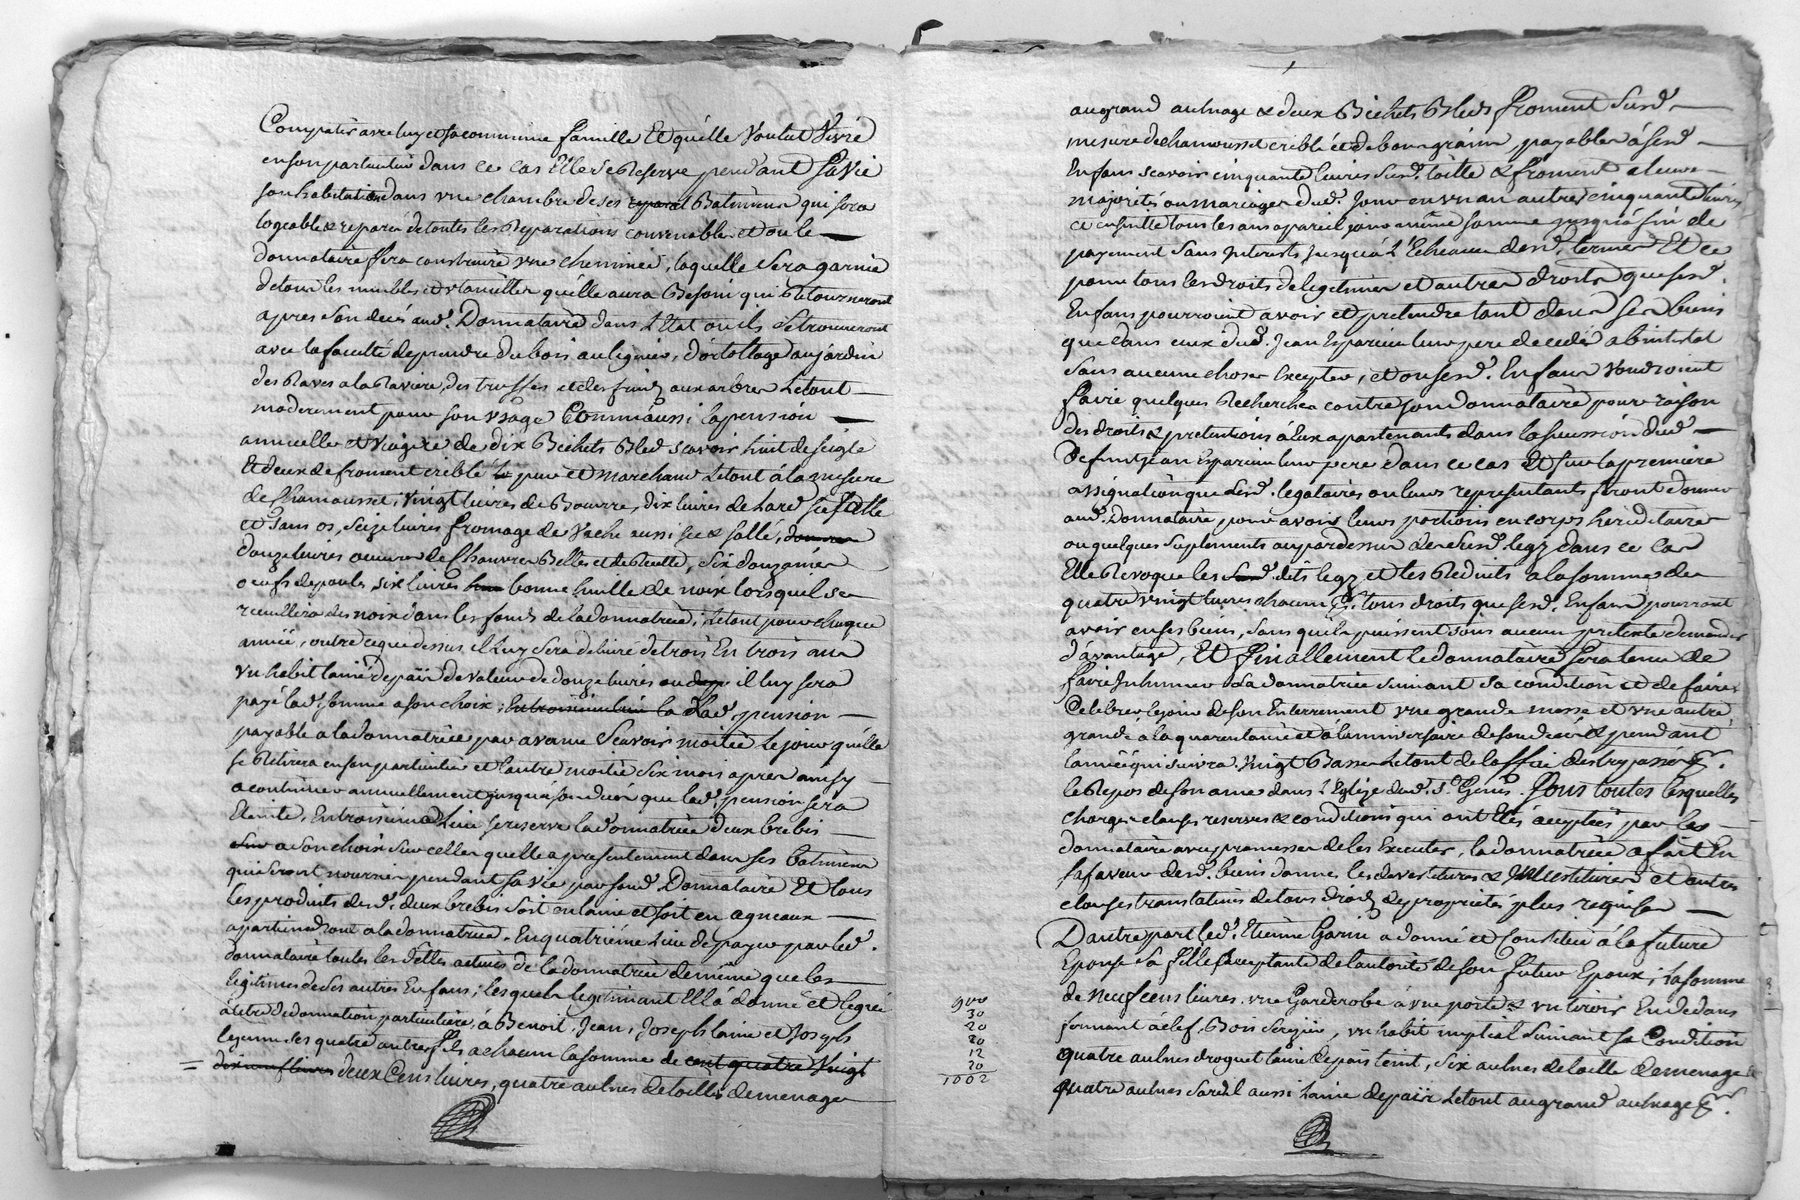 Compatir avec luy et sa commune famille Et quelle Voulut Vivre
en son particulier dans ce cas Elle se Reserve pendant Sa Vie
son habitation dans une chambre de ses Batiment qui sera
logeable & reparée de toutes les Reparations convenables et ou le
donnataire fera construire une cheminée, laquelle Sera garnie
de tous les meubles et utancilles quelle aura Besoin qui Retourneront
apres son decés aud. Donnataire dans L'Etat ou ils Se trouveront
avec la faculté de prendre du bois au lignier, d'ortollage au jardin
des Raves a la Raviere, des truffes et des fruits aux arbres Le tout
moderement pour son usage Comm'aussi la pension
annuelle et Viagere de dix Bichets Bled scavoir huit de seigle
Et deux de froment criblé pur et marchand Le tout à la mesure
de Chamousset, Vingt livres de Beurre, dix livres de Lard sec sallé
et Sans os, Seize livres fromage de Vache aussi sec & sallé,
douze livres œuvre de Chanvre Belles et de Recette, Six douzaines
oeufs de poules six livres bonne huille de noix lorsquil se
recuillira des noix dans les fonds de la donnatrice; Le tout pour chaque
année, outre ce que dessus il luy Sera delivré de trois En trois ans
un habit laine de païs de valeur de douze livres ou il luy sera
payé lad. somme a son choix; lad. pension
payable a la donnatrice par avance Scavoir moitié Le jour quelle
se Retirera en son particulier et l'autre moitié Six mois apres ainsy
a continuer annuellement jusqua son decés que lad. pension sera
Eteinte, En troisieme Lieu se reserve la donnatrice deux brebis
a son choix sur celles quelle a presentement dans ses batiments
qui seront nourries pendant sa vie par sond. Donnataire Et tous
Les produits desd. deux brebis soit en laine et soit en agneaux
apartiendront a la donnatrice, En quatriéme Lieu de payer par led.
donnataire toutes les dettes actives de la donnatrice de même que les
légitimes de Ses autres Enfans; lesquels legitimant Ell'a donné et legué
à titre de donnation particuliere, à Benoit, Jean, Joseph laine et Joseph
lejeune ses quatre autres fils a chacun la somme de cent quatre Vingt
= dix neuf livres deux Cens livres, quatre aulnes de toilles de menage
au grand aulnage & deux Bichets Bled froment Susd.
mesure de chamousset criblé et de bon grain, payables à sesd.
Enfans scavoir cinquante livres Susd. toille & froment a leurs
majorités ou mariages dud. jour en un an autres cinquante livres
et ensuitte tous les ans a pareil jour même somme jusqu'a fin de
payement Sans Interests jusqu'a L'Echeance desd. termes Et ce
pour tous les droits de legitimes et autres droits que sesd.
Enfans pourroient avoir et pretendre tant dans ses biens
que dans ceux dud. Jean Esparcieu leur pere decedé abintestat
Sans aucune chose Excepter, et ou sesd. Enfans voudroient
faire quelques Recherches contre son donnataire pour raison
des droits & pretentions à eux apartenants dans la succession dud.
Defunt jean Esparcieu leur pere dans ce cas Et sur la premiere
assignation que Lesd. legataires ou leurs representants feront donner
aud. donnataire pour avoir leurs portions en corps hereditaire
ou quelques suplements au pardessus desd. legz dans ce cas
Elle Revoque les dits legz et les Reduits a la somme de
quatre vingt livres chacun p. tous droits que sesd. Enfans pourront
avoir en ses biens, Sans quils puissent sous aucun pretexte demander
d'avantage, Et finallement le donnataire Sera tenu de
faire Inhumer La donnatrice suivant sa condition et de faire
Celebrer le jour de son Enterrement une grande messe et une autre
grande a la quarantaine et à l'anniversaire de son decés & pendant
l'année qui suivra. Vingt Basses Le tout de l'office des trepassés p.
le Repos de son ame dans l'Eglise dud. St. Genis. Sous toutes lesquelles
charges clauses reserves & conditions qui ont Etés acceptées par les
donnataire avec promesse de les Executer, la donnatrice a fait En
sa faveur desd. biens donnés les devestitures & Investitures et autres
clauses translatives de tous droits de proprietés plus requises
D'autre part led. Etienne Garin a donné et Constitué à la future
Epouse Sa fille acceptante de l'autorité de son futur Epoux; La somme
de neuf cens livres. une Garderobe à une porte & un tiroir En dedans
fermant à clef Bois Serizier, un habit nuptial Suivant sa Condition
quatre aulnes droguet laine de païs teint, Six aulnes de toille de menage
quatre aulnes Sardil aussi Laine de païs Le tout au grand aulnage p.
900
30
20
20
12
20
1002